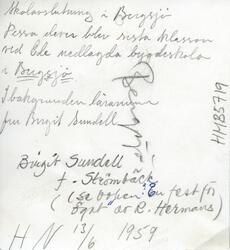 Skolavslutning i Bergsjö
Dessa elever blev sista klassen
ved lde nedlagda bygdeskolan
i Bergsjö
I bakgrunden lärarinnan
fru Birgit Sundell
Bergsjö
HHB5719
Birgit Sundell
f. Strömbäck
(se boken "En fest för
ögat" av R. Hermans)
H N 13/6 1959